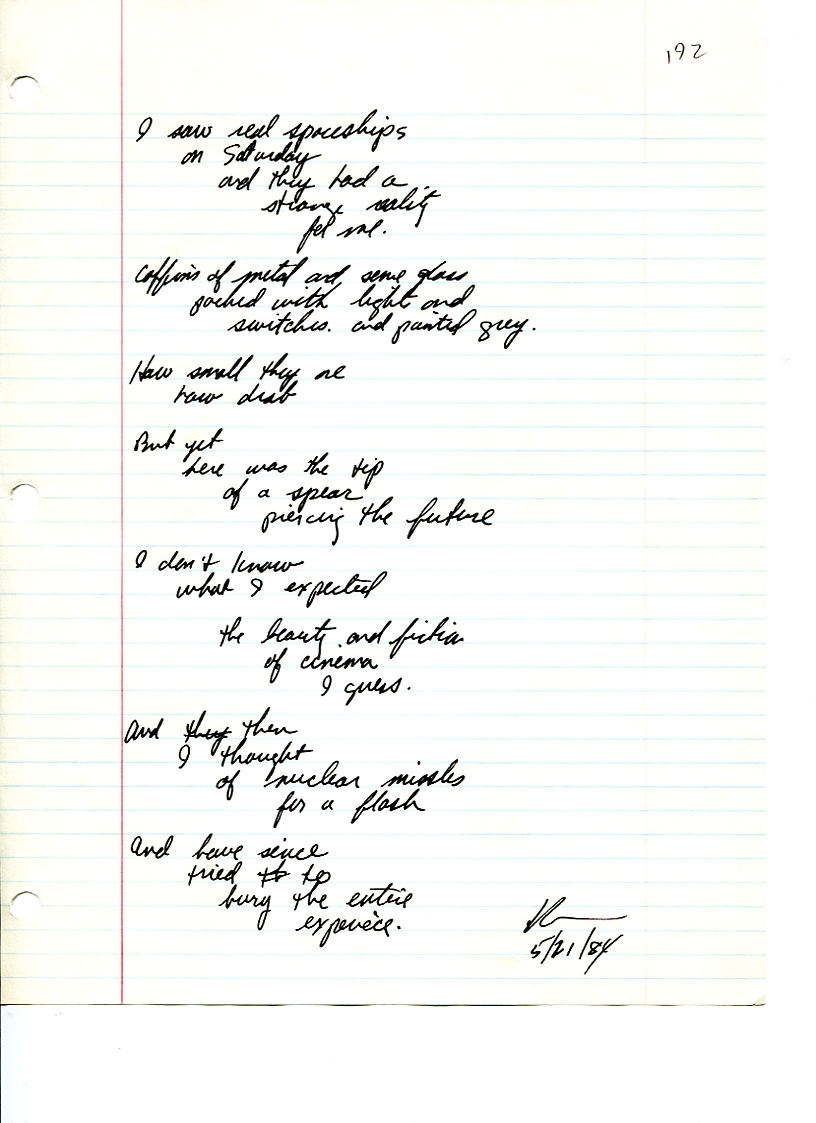 192
I saw real spaceships
on Saturday
and they had a
strange reality
for me.
Coffins of metal and some glass
packed with light and
switches. and painted grey.
How small they are
how drab
But yet
here was the tip
of a spear
piercing the future
I don't know
what I expected
the beauty and fiction
of cinema
I guess.
And they then
I thought
of nuclear missles
for a flash
And have since
tried to to
bury the entire
experiece.
5/21/84